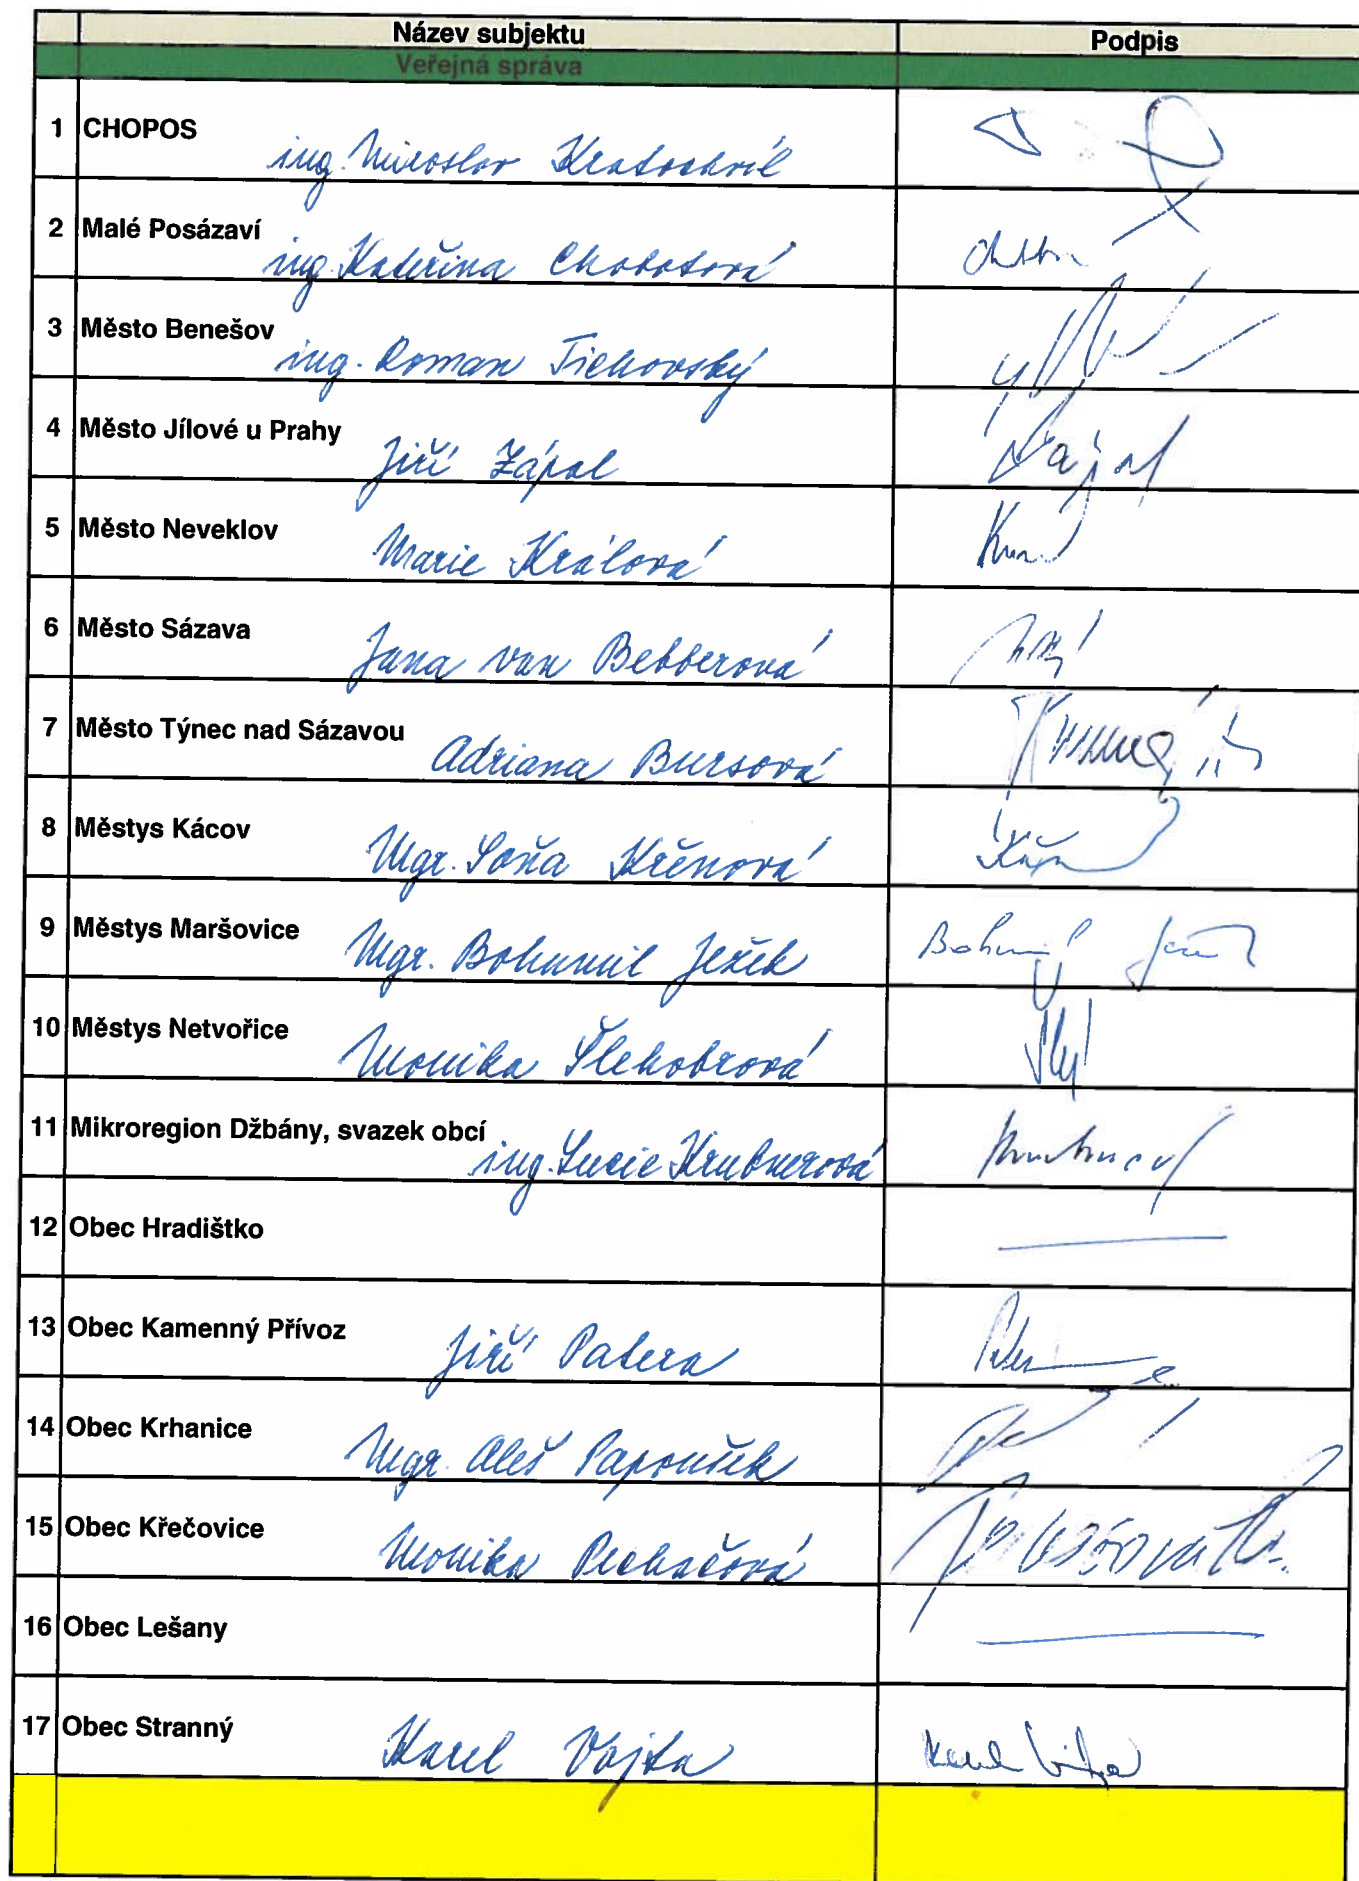 Název subjektu Podpis
Veřejná správa
1 CHOPOS
ing. Miroslav Kratochvíl
2 Malé Posázaví
ing. Kateřina Chobotová
3 Město Benešov
ing. Roman Tichovský
4 Město Jílové u Prahy
Jiří Zápal
5 Město Neveklov
Marie Králová
6 Město Sázava
Jana van Bebberová
7 Město Týnec nad Sázavou
Adriana Bursová
8 Městys Kácov
Mgr. Soňa Křenová
9 Městys Maršovice
Mgr. Bohumil Ježek
10 Městys Netvořice
Monika Šlehobrová
11 Mikroregion Džbány, svazek obcí
ing. Lucie Krubnerová
12 Obec Hradištko
13 Obec Kamenný Přívoz
Jiří Patera
14 Obec Krhanice
Mgr. Aleš Papoušek
15 Obec Křečovice
Monika Pechačová
16 Obec Lešany
17 Obec Stranný
Karel Vojta